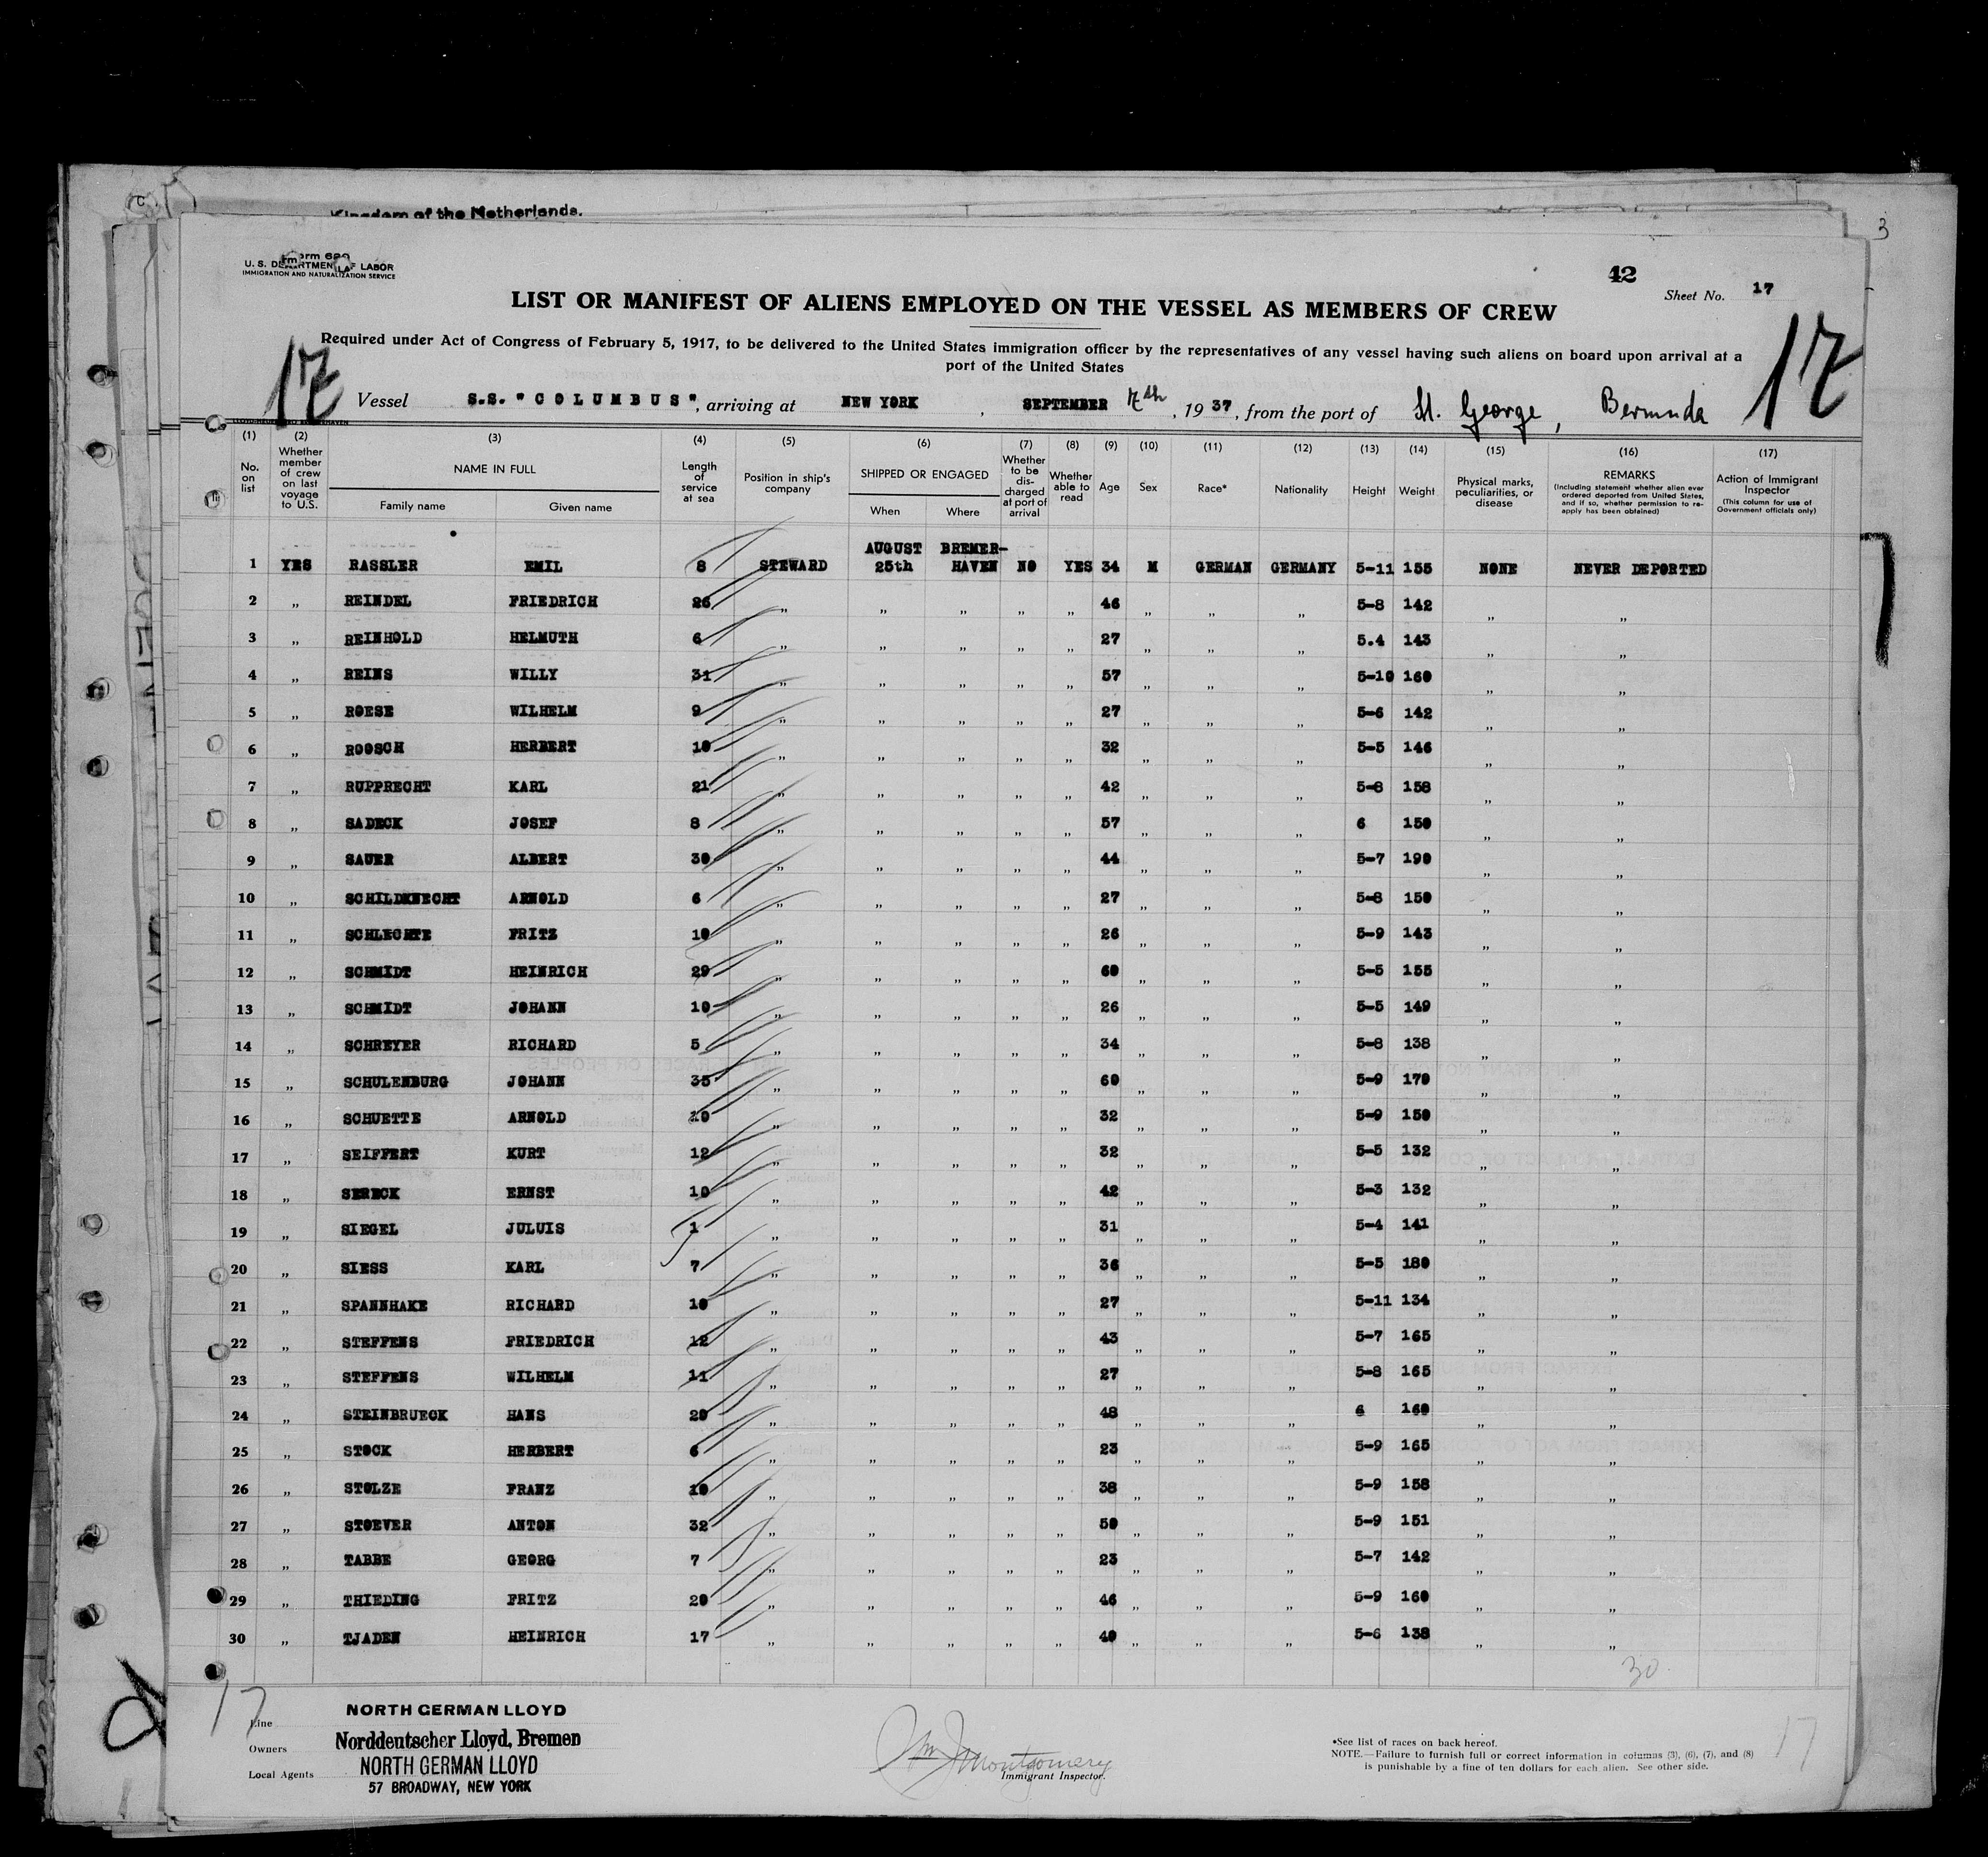 Kingdom of the Netherlands.
3
U. S. DEPARTMENT OF LABOR
IMMIGRATION AND NATURALIZATION SERVICE
42
Sheet No. 17
LIST OR MANIFEST OF ALIENS EMPLOYED ON THE VESSEL AS MEMBERS OF CREW
Required under Act of Congress of February 5, 1917, to be delivered to the United States immigration officer by the representatives of any vessel having such aliens on board upon arrival at a
port of the United States
17 17
Vessel S.S. "COLUMBUS", arriving at NEW YORK, SEPTEMBER 7th, 1937, from the port of St. George, Bermuda
(1) (2) (3) (4) (5) (6) (7) (8) (9) (10) (11) (12) (13) (14) (15) (16) (17)
No. on list
Whether member of crew on last voyage to U.S.
NAME IN FULL
Family name Given name
Length of service at sea
Position in ship's company
SHIPPED OR ENGAGED
When Where
Whether to be discharged at port of arrival
Whether able to read
Age Sex Race* Nationality Height Weight
Physical marks, peculiarities, or disease
REMARKS
(Including statement whether alien ever ordered deported from United States, and if so, whether permission to re-apply has been obtained)
Action of Immigrant Inspector
(This column for use of Government officials only)
AUGUST BREMER-
1 YES RASSLER EMIL 8 STEWARD 25th HAVEN NO YES 34 M GERMAN GERMANY 5-11 155 NONE NEVER DEPORTED
2 " REINDEL FRIEDRICH 26 " " " " " 46 " " " 5-8 142 " "
3 " REINHOLD HELMUTH 6 " " " " " 27 " " " 5.4 143 " "
4 " REINS WILLY 31 " " " " " 57 " " " 5-10 160 " "
5 " ROESE WILHELM 9 " " " " " 27 " " " 5-6 142 " "
6 " ROOSCH HERBERT 10 " " " " " 32 " " " 5-5 146 " "
7 " RUPPRECHT KARL 21 " " " " " 42 " " " 5-8 158 " "
8 " SADECK JOSEF 8 " " " " " 57 " " " 6 150 " "
9 " SAUER ALBERT 30 " " " " " 44 " " " 5-7 190 " "
10 " SCHILDKNECHT ARNOLD 6 " " " " " 27 " " " 5-8 150 " "
11 " SCHLECHTE FRITZ 10 " " " " " 26 " " " 5-9 143 " "
12 " SCHMIDT HEINRICH 29 " " " " " 60 " " " 5-5 155 " "
13 " SCHMIDT JOHANN 10 " " " " " 26 " " " 5-5 149 " "
14 " SCHREYER RICHARD 5 " " " " " 34 " " " 5-8 138 " "
15 " SCHULENBURG JOHANN 35 " " " " " 60 " " " 5-9 170 " "
16 " SCHUETTE ARNOLD 10 " " " " " 32 " " " 5-9 150 " "
17 " SEIFFERT KURT 12 " " " " " 32 " " " 5-5 132 " "
18 " SERECK ERNST 10 " " " " " 42 " " " 5-3 132 " "
19 " SIEGEL JULUIS 1 " " " " " 31 " " " 5-4 141 " "
20 " SIESS KARL 7 " " " " " 36 " " " 5-5 180 " "
21 " SPANNHAKE RICHARD 10 " " " " " 27 " " " 5-11 134 " "
22 " STEFFENS FRIEDRICH 12 " " " " " 43 " " " 5-7 165 " "
23 " STEFFENS WILHELM 11 " " " " " 27 " " " 5-8 165 " "
24 " STEINBRUECK HANS 20 " " " " " 48 " " " 6 160 " "
25 " STOCK HERBERT 6 " " " " " 23 " " " 5-9 165 " "
26 " STOLZE FRANZ 10 " " " " " 38 " " " 5-9 158 " "
27 " STOEVER ANTON 32 " " " " " 50 " " " 5-9 151 " "
28 " TABBE GEORG 7 " " " " " 23 " " " 5-7 142 " "
29 " THIEDING FRITZ 20 " " " " " 46 " " " 5-9 160 " "
30 " TJADEN HEINRICH 17 " " " " " 40 " " " 5-6 138 " "
30
17
Line NORTH GERMAN LLOYD
Owners Norddeutscher Lloyd, Bremen
Local Agents NORTH GERMAN LLOYD
57 BROADWAY, NEW YORK
Wm J Montgomery
Immigrant Inspector.
*See list of races on back hereof.
NOTE.—Failure to furnish full or correct information in columns (3), (6), (7), and (8)
is punishable by a fine of ten dollars for each alien. See other side.
17